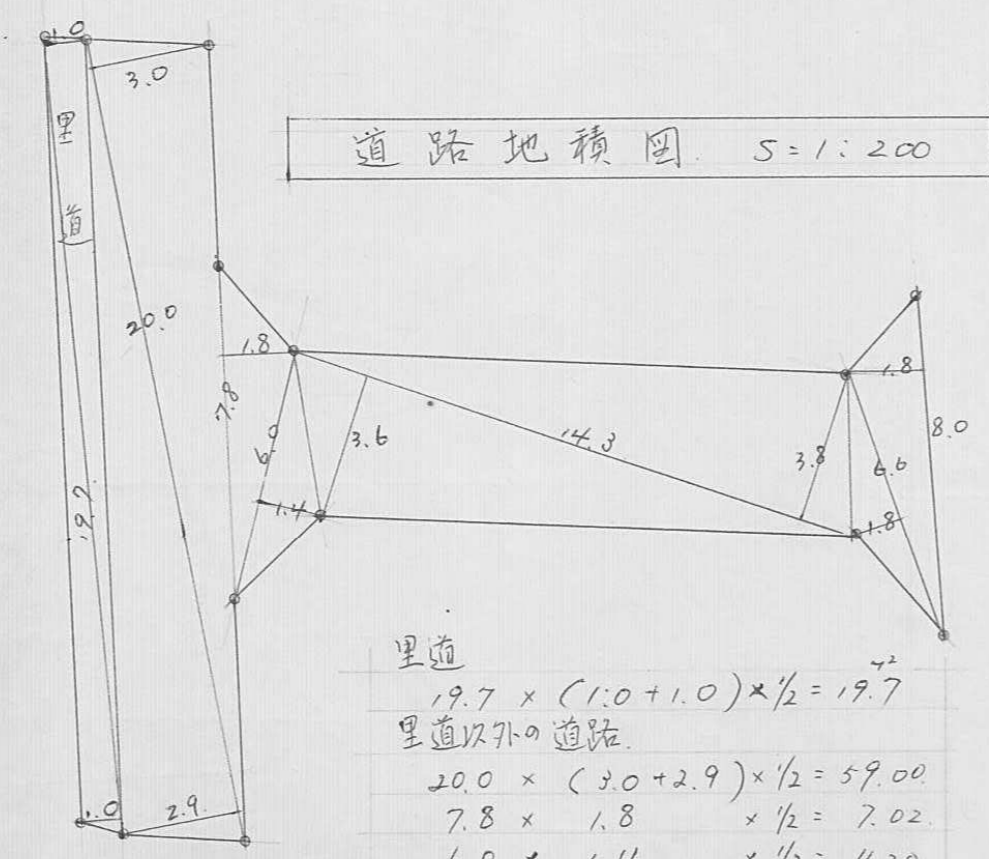 1.0
3.0
里道
道路地積図. S=1:200
20.0
1.8
7.8
6.0
3.6
1.4
14.3
3.8
6.6
1.8
8.0
1.8
1.0
2.9
里道
19.7 × (1.0+1.0)×1/2 = 19.7
里道以外の道路.
20.0 × (3.0+2.9)×1/2 = 59.00
7.8 × 1.8 × 1/2 = 7.02